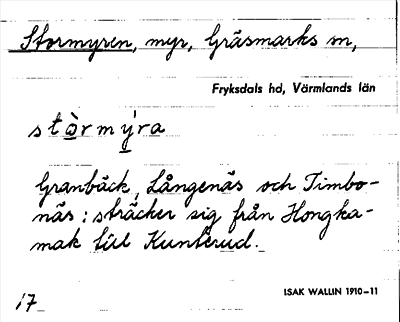 Stormyren, myr, Gräsmarks sn,
Fryksdals hd, Värmlands län
stòrmýra
Granbäck, Långenäs och Timbo-
näs: sträcker sig från Honka-
mak till Kunterud.
ISAK WALLIN 1910-11
17